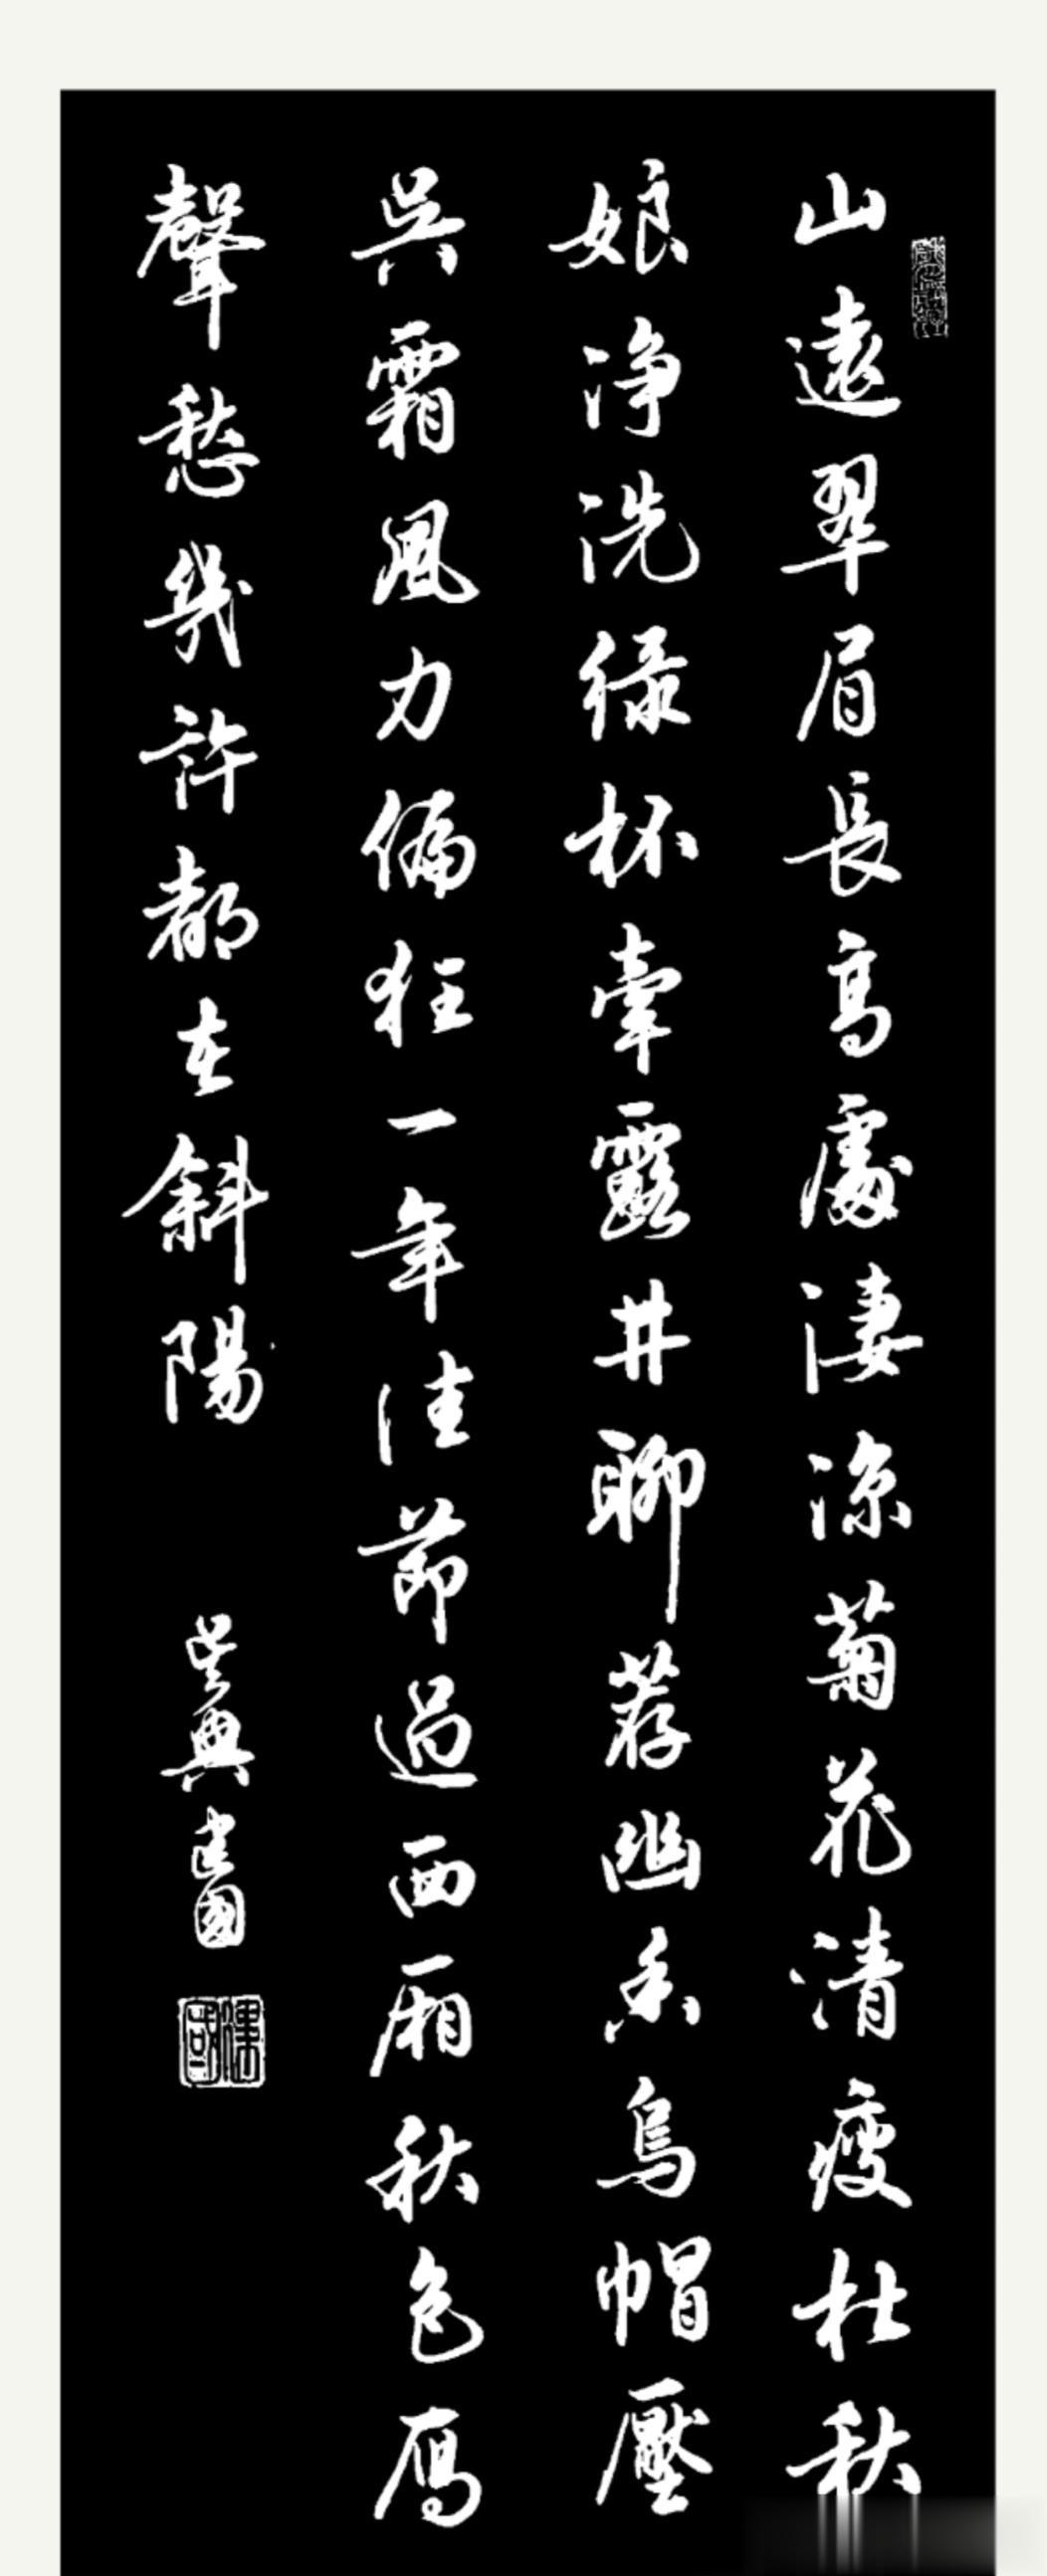 山遠翠眉長高處淒涼菊花清瘦杜秋
娘淨洗綠杯牽露井聊荐幽香烏帽壓
吳霜風力偏狂一年佳節過西廂秋色雁
聲愁幾許都在斜陽
吳興建國
建國